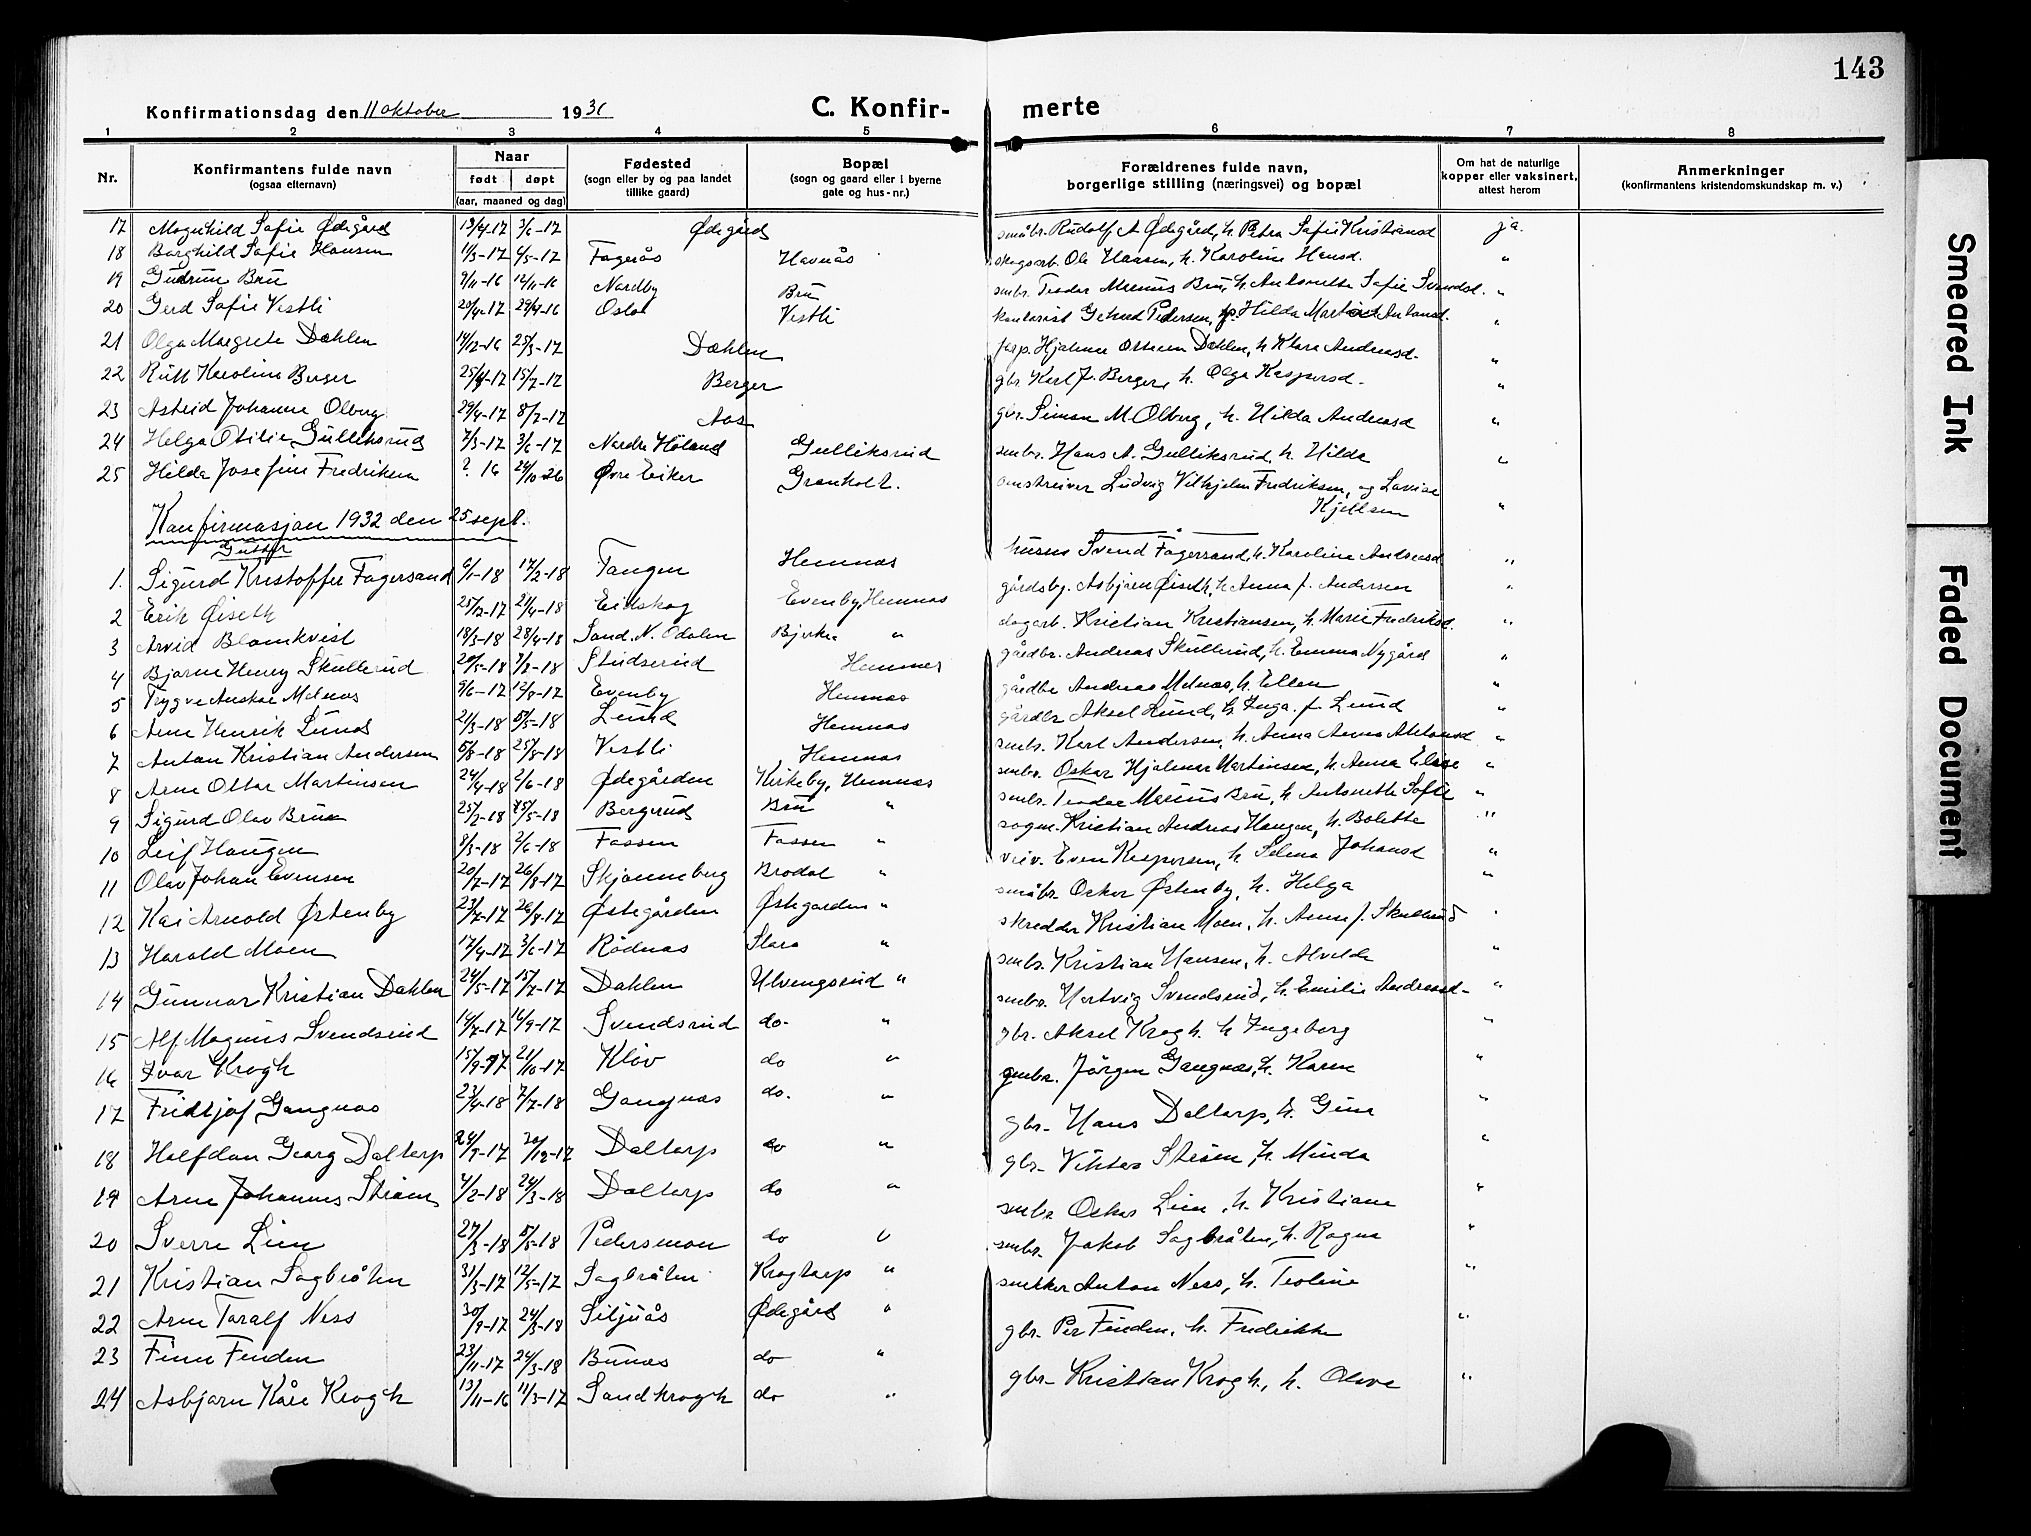 143
Konfirmationsdag den 11 oktober 1931 C. Konfir- merte
1 2 3 4 5 6 7 8
Nr. Konfirmantens fulde navn (ogsaa efternavn) Naar født døpt (aar, maaned og dag) Fødested (sogn eller by og paa landet tillike gaard) Bopæl (sogn og gaard eller i byerne gate og hus-nr.) Forældrenes fulde navn, borgerlige stilling (næringsvei) og bopæl Om hat de naturlige kopper eller vaksinert, attest herom Anmerkninger (konfirmantens kristendomskundskap m. v.)
17 Magnhild Sofie Ødegård 3/6-17 Ødegård småbr. Rudolf A Ødegård, h. Petra Sofie Kristiansd ja.
18 Borghild Sofie Hansen 11/3-17 6/5-17 Fagerås Havnås skogsarb. Ole Hansen, h. Karoline Hansd. "
19 Gudrun Bru 9/11-16 12/11-16 Nordby Bru smbr. Teodor Marius Bru, h. Antonette Sofie Svendsd. "
20 Gerd Sofie Vestli 20/4-17 29/4-16 Oslo Vestli kontorist Pedersen, Hilda "
21 Olga Margrete Dæhlen 14/12-16 25/3-17 Dæhlen forp. Hjalmar Ottesen Dæhlen, h. Klara Andreasd. "
22 Rutt Karoline Berger 25/4-17 15/7-17 Berger gbr. Karl J. Berger, h. Olga Kaspersd. "
23 Astrid Johanne Olberg 29/4-17 8/7-17 Aas gbr. Simon M. Olberg, h. Hilda Andreasd "
24 Helga Otilie Gulliksrud 7/3-17 3/6-17 Nordre Høland Gulliksrud smbr. Hans A. Gulliksrud, h. Hilda "
25 Hilda Josefine Fredriksen ? 16 24/10-26 Øvre Eiker Granholt. omstreiver Ludvig Vilhjelm Fredriksen, og Lovise
Kjellsen "
Konfirmasjon 1932 den 25 sept.
Gutter
1. Sigurd Kristoffer Fagersand 6/1-18 17/2-18 Tangen Hemnes husm Svend Fagersand, h. Karoline Andreasd "
2 Erik Øiseth 25/12-17 21/4-18 Eidskog Evenby, Hemnes gårdsby. Asbjørn Øiseth, h. Anna f. Andersen "
3 Arvid Blomkvist 18/3-18 28/4-18 Sand. N. Odalen Bjerke " dagarb. Kristian Kristiansen, h. Marie Fredriksd. "
4 Bjarne Henry Skullerud 20/5-18 Studserud Hemnes gårdbr. Andreas Skullerud, h. Emma Nygård "
5 Trygve Anskar Melnes 9/6-17 12/8-17 Evenby Hemnes gårdbr Andreas Melnes, h. Ellen "
6 Arne Henrik Lund 21/3-18 5/5-18 Lund Hemnes gårdbr Aksel Lund, h. Inga f. Lund "
7 Anton Kristian Andersen 5/8-18 25/8-18 Vestli Hemnes smbr. Karl Andersen, h. Anna "
8 Arne Ottar Martinsen 24/4-18 2/6-18 Ødegården Kirkeby, Hemnes smbr. Oskar Hjalmar Martinsen, h. Anna Elise "
9 Sigurd Olav Brun 25/2-18 25/5-18 Bergerud Bru " smbr. Teodor Marius Bru, h. Antonette Sofie "
10 Leif Haugen 8/3-18 2/6-18 Fossen Fossen " sagm. Kristian Andreas Haugen, h. Bolette "
11 Olav Johan Evensen 20/7-17 26/8-17 Skjønneberg Brodal " veiv. Even Kaspersen, h. Selma Johansd "
12 Kai Arnold Østenby 23/7-17 26/8-17 Østegården Østegarden " småbr. Oskar Østenby, h. Helga "
13 Harald Moen 17/4-17 3/6-17 Rødnes Slora " skredder Kristian Moen, h. Anna f. Skullerud "
14 Gunnar Kristian Dahlen 24/5-17 15/7-17 Dahlen Ulvengsrud " smbr. Kristian Hansen, h. Alvilde "
15 Alf Magnus Svendsrud 14/7-17 16/9-17 Svendsrud do. " smbr. Hartvig Svendsrud, h. Emilie Andreasd. "
16 Ivar Krogh 15/9-17 21/10-17 Kløv do " gbr. Aksel Krogh, h. Ingeborg "
17 Fridtjof Gangnæs 23/4-18 7/7-18 Gangnæs do. " smbr. Jörgen Gangnæs, h. Karen "
18 Halfdan Georg Daltorp 24/9-17 20/12-17 Daltorp do " gbr. Hans Daltorp, h. Gina "
19 Arne Johannes Strøm 4/2-18 24/3-18 Daltorp do " gbr. Viktor Strøm, h. Minda "
20 Sverre Lien 27/3-18 5/5-18 Pedersmoen do " smbr Oskar Lien, h. Kristiane "
21 Kristian Sagbråten 31/3-17 12/5-17 Sagbråten Krogtorp " smbr. Jakob Sagbråten, h. Ragna "
22 Arne Toralf Ness 30/9-17 24/3-18 Siljuås Ødegård " snekker Anton Ness, h. Teoline "
23 Finn Finden 23/11-17 24/3-18 Bunes do " gbr. Per Finden, h. Fredrikke "
24 Asbjørn Kåre Krogh 13/11-16 11/3-17 Sandkrogh do " gbr. Kristian Krogh, h. Olava "
Smeared Ink
Faded Document